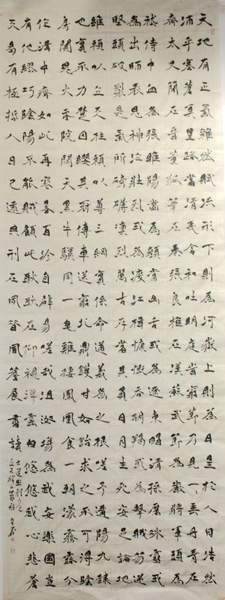 天地有正氣雜然賦流形下則為河嶽上則為日星於人曰浩然
沛乎塞蒼冥皇路當清夷含和吐明庭時窮節乃見一一垂丹青在
齊太史簡在晉董狐筆在秦張良椎在漢蘇武節為嚴將軍頭為
嵇侍中血為張睢陽齒為顏常山舌或為遼東帽清操厲冰雪或為
出師表鬼神泣壯烈或為渡江楫慷慨吞胡羯或為擊賊笏逆
豎頭破裂是氣所磅礴凜烈萬古存當其貫日月生死安足論地
維賴以立天柱賴以尊三綱實繫命道義為之根嗟予遘陽九隸
也實不力楚囚纓其冠傳車送窮北鼎鑊甘如飴求之不可得陰
房闃鬼火春院閟天黑牛驥同一皂雞棲鳳凰食一朝濛霧露分
作溝中瘠如此再寒暑百沴自辟易哀哉沮洳場為我安樂國豈
有他繆巧陰陽不能賊顧此耿耿在仰視浮雲白悠悠我心悲蒼
天曷有極哲人日已遠典刑在夙昔風簷展書讀
古道照顏色